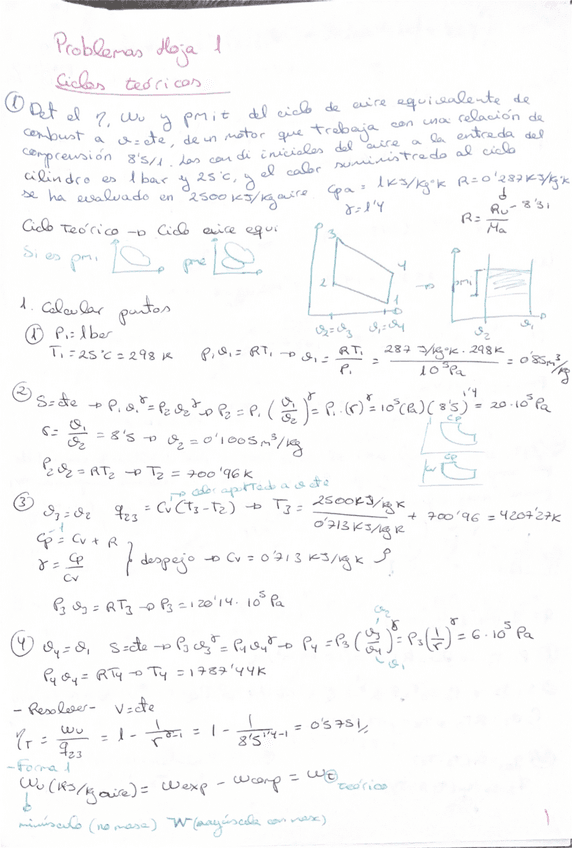 Problemas Hoja 1
Ciclos teóricos
① Det el η, Wu y pmit del ciclo de aire equivalente de
combust a v=cte, de un motor que trabaja con una relación de
compresión 8'5/1. Las condi iniciales del aire a la entrada del
cilindro es 1 bar y 25°C, y el calor suministrado al ciclo
se ha evaluado en 2500 KJ/Kg aire cpa = 1KJ/Kg·K R=0'287KJ/Kg·K
γ=1'4
R = Ru/Ma - 8'31
Ciclo Teórico → Ciclo aire equi.
Si es pmi pme
P 3 2 4 1 v₂=v₃ v₁=v₄ → P pmi v₂ v₁
1. Calcular puntos
① P₁=1bar
T₁=25°C=298 K P₁v₁=RT₁ → v₁ = RT₁/P₁ = 287 J/Kg·K · 298K / 10⁵Pa = 0'85m³/Kg
② S=cte → P₁v₁^γ=P₂v₂^γ → P₂=P₁(v₁/v₂)^γ = P₁·(r)^γ = 10⁵(Pa)(8'5)^1'4 = 20·10⁵Pa
r = v₁/v₂ = 8'5 → v₂ = 0'1005m³/Kg
P₂v₂=RT₂ → T₂ = 700'96K
cp
→ calor aportado a v cte
③ v₃=v₂ q₂₃ = Cv(T₃-T₂) → T₃ = 2500KJ/KgK / 0'713 KJ/KgK + 700'96 = 4207'27K
Cp = Cv + R
γ = Cp/Cv } despejo → Cv = 0'713 KJ/Kg K
P₃v₃=RT₃ → P₃=120'14·10⁵Pa
④ v₄=v₁ S=cte → P₃v₃^γ=P₄v₄^γ → P₄ = P₃(v₃/v₄)^γ = P₃(1/r)^γ = 6·10⁵Pa
v₂
v₁
P₄v₄=RT₄ → T₄=1787'44K
- Resolver - V=cte
ηT = wu/q₂₃ = 1 - 1/r^γ-1 = 1 - 1/8'5^1'4-1 = 0'575 1/.
- Forma 1
Wu (KJ/Kg aire) = wexp - wcomp = wt teórico
minúscula (no masa) W (mayúscula con masa)
1